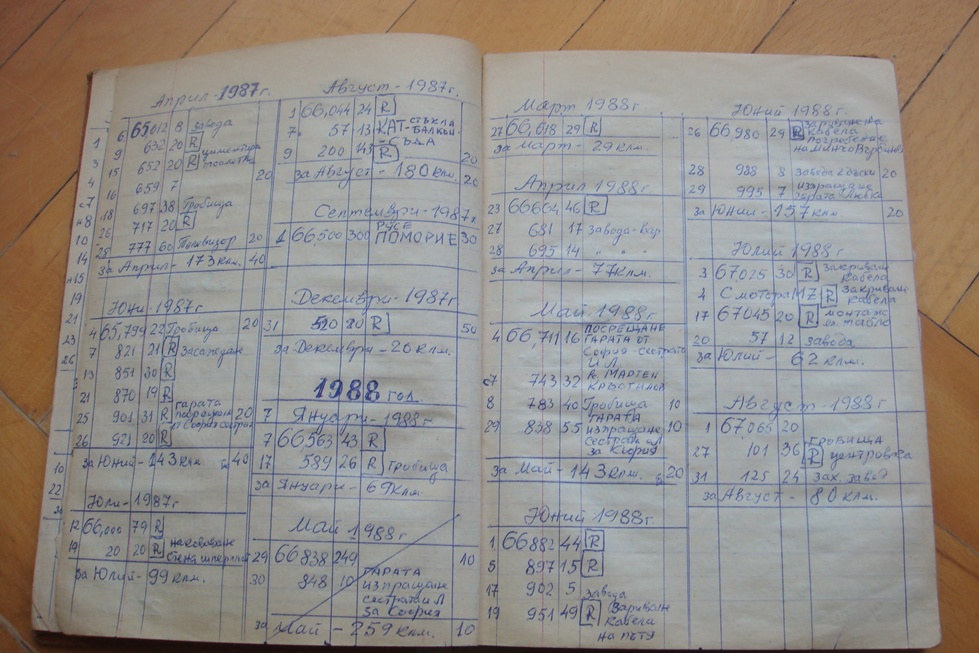 Април - 1987 г.
6 65012 8 завода
9 632 20 R
15 652 20 R 20
16 659 7
18 697 38 Гробища
26 717 20 R
28 777 60 Телевизор 20
за Април - 173 клм. 40
Юни - 1987 г
4 65,799 22 Гробища 20
7 821 21 R Засаждане
13 851 30 R
21 870 19 R
25 901 31 R гарата 20
26 921 20 R
за Юний - 143 клм. 40
Юли - 1987 г
12 66,000 79 R
19 20 20 R наковаване
за Юлий - 99 клм.
Август - 1987 г.
1 66,044 24 R
7 57 13 КАТ - стъкла
- балкон
- съда
9 200 143 R 20
за Август - 180 клм. 20
Септември - 1987 г.
Русе
1 66500 300 Поморие 30
Декември - 1987 г
31 520 20 R 50
за Декември - 20 клм.
1988 год.
Януари - 1988 г
7 66563 43 R
17 589 26 R гробища
за Януари - 69 клм.
Май 1988 г.
29 66838 249 10
30 848 10 гарата
изпращане
сестрата и Л
за София
за Май - 259 клм. 10
Март 1988 г.
27 66,618 29 R
за Март - 29 клм.
Април 1988 г.
23 66664 46 R
27 681 17 завода - Вар
28 695 14 " " "
за Април - 77 клм.
Май 1988 г.
4 66,711 16 посрещане
гарата от
София - сестрата
и Л
7 743 32 R Мартен
8 783 40 Гробища 10
29 838 55 гарата
изпращане
сестрата и Л
за София
за Май - 143 клм. 20
Юний 1988 г.
1 66882 44 R
5 897 15 R
17 902 5 завода
19 951 49 R Зариване
кабела
на пътя
Юний 1988 г.
26 66980 29 R зариване на
кабела
погребение
на Минчо
28 988 8 завода 20
29 995 7 изпращане
гарата
за Юний - 157 клм 20
Юлий 1988 г
3 67025 30 R закриван
кабела
4 С мотора 117 R Закриван
кабела
17 67045 20 R монтаж
ел. табло
20 57 12 завода
за Юлий - 62 клм.
Август - 1988 г
1 67065 20
27 101 36 гробища
R центровка
31 125 24 зах. завод
за Август - 80 клм.